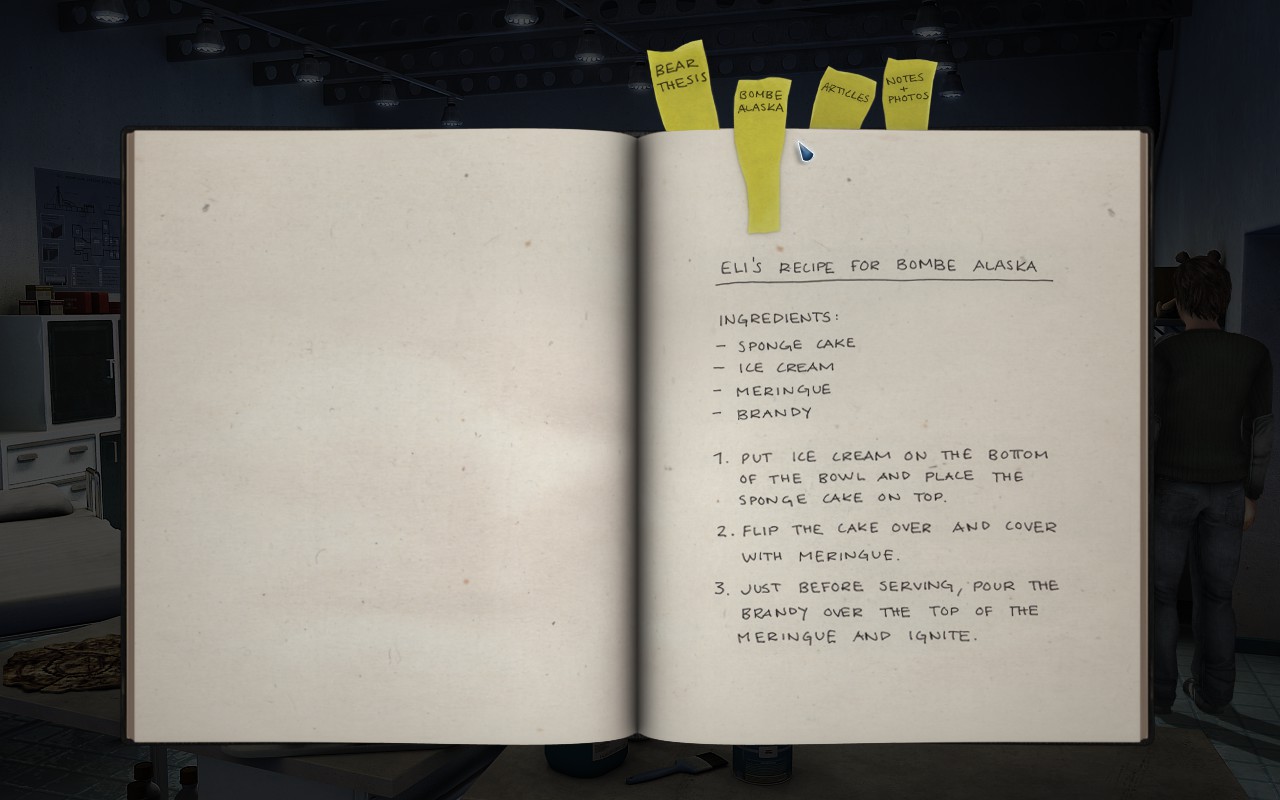 BEAR
THESIS
BOMBE
ALASKA
ARTICLES
NOTES
+
PHOTOS
ELI'S RECIPE FOR BOMBE ALASKA
INGREDIENTS:
- SPONGE CAKE
- ICE CREAM
- MERINGUE
- BRANDY
1. PUT ICE CREAM ON THE BOTTOM
OF THE BOWL AND PLACE THE
SPONGE CAKE ON TOP.
2. FLIP THE CAKE OVER AND COVER
WITH MERINGUE.
3. JUST BEFORE SERVING, POUR THE
BRANDY OVER THE TOP OF THE
MERINGUE AND IGNITE.